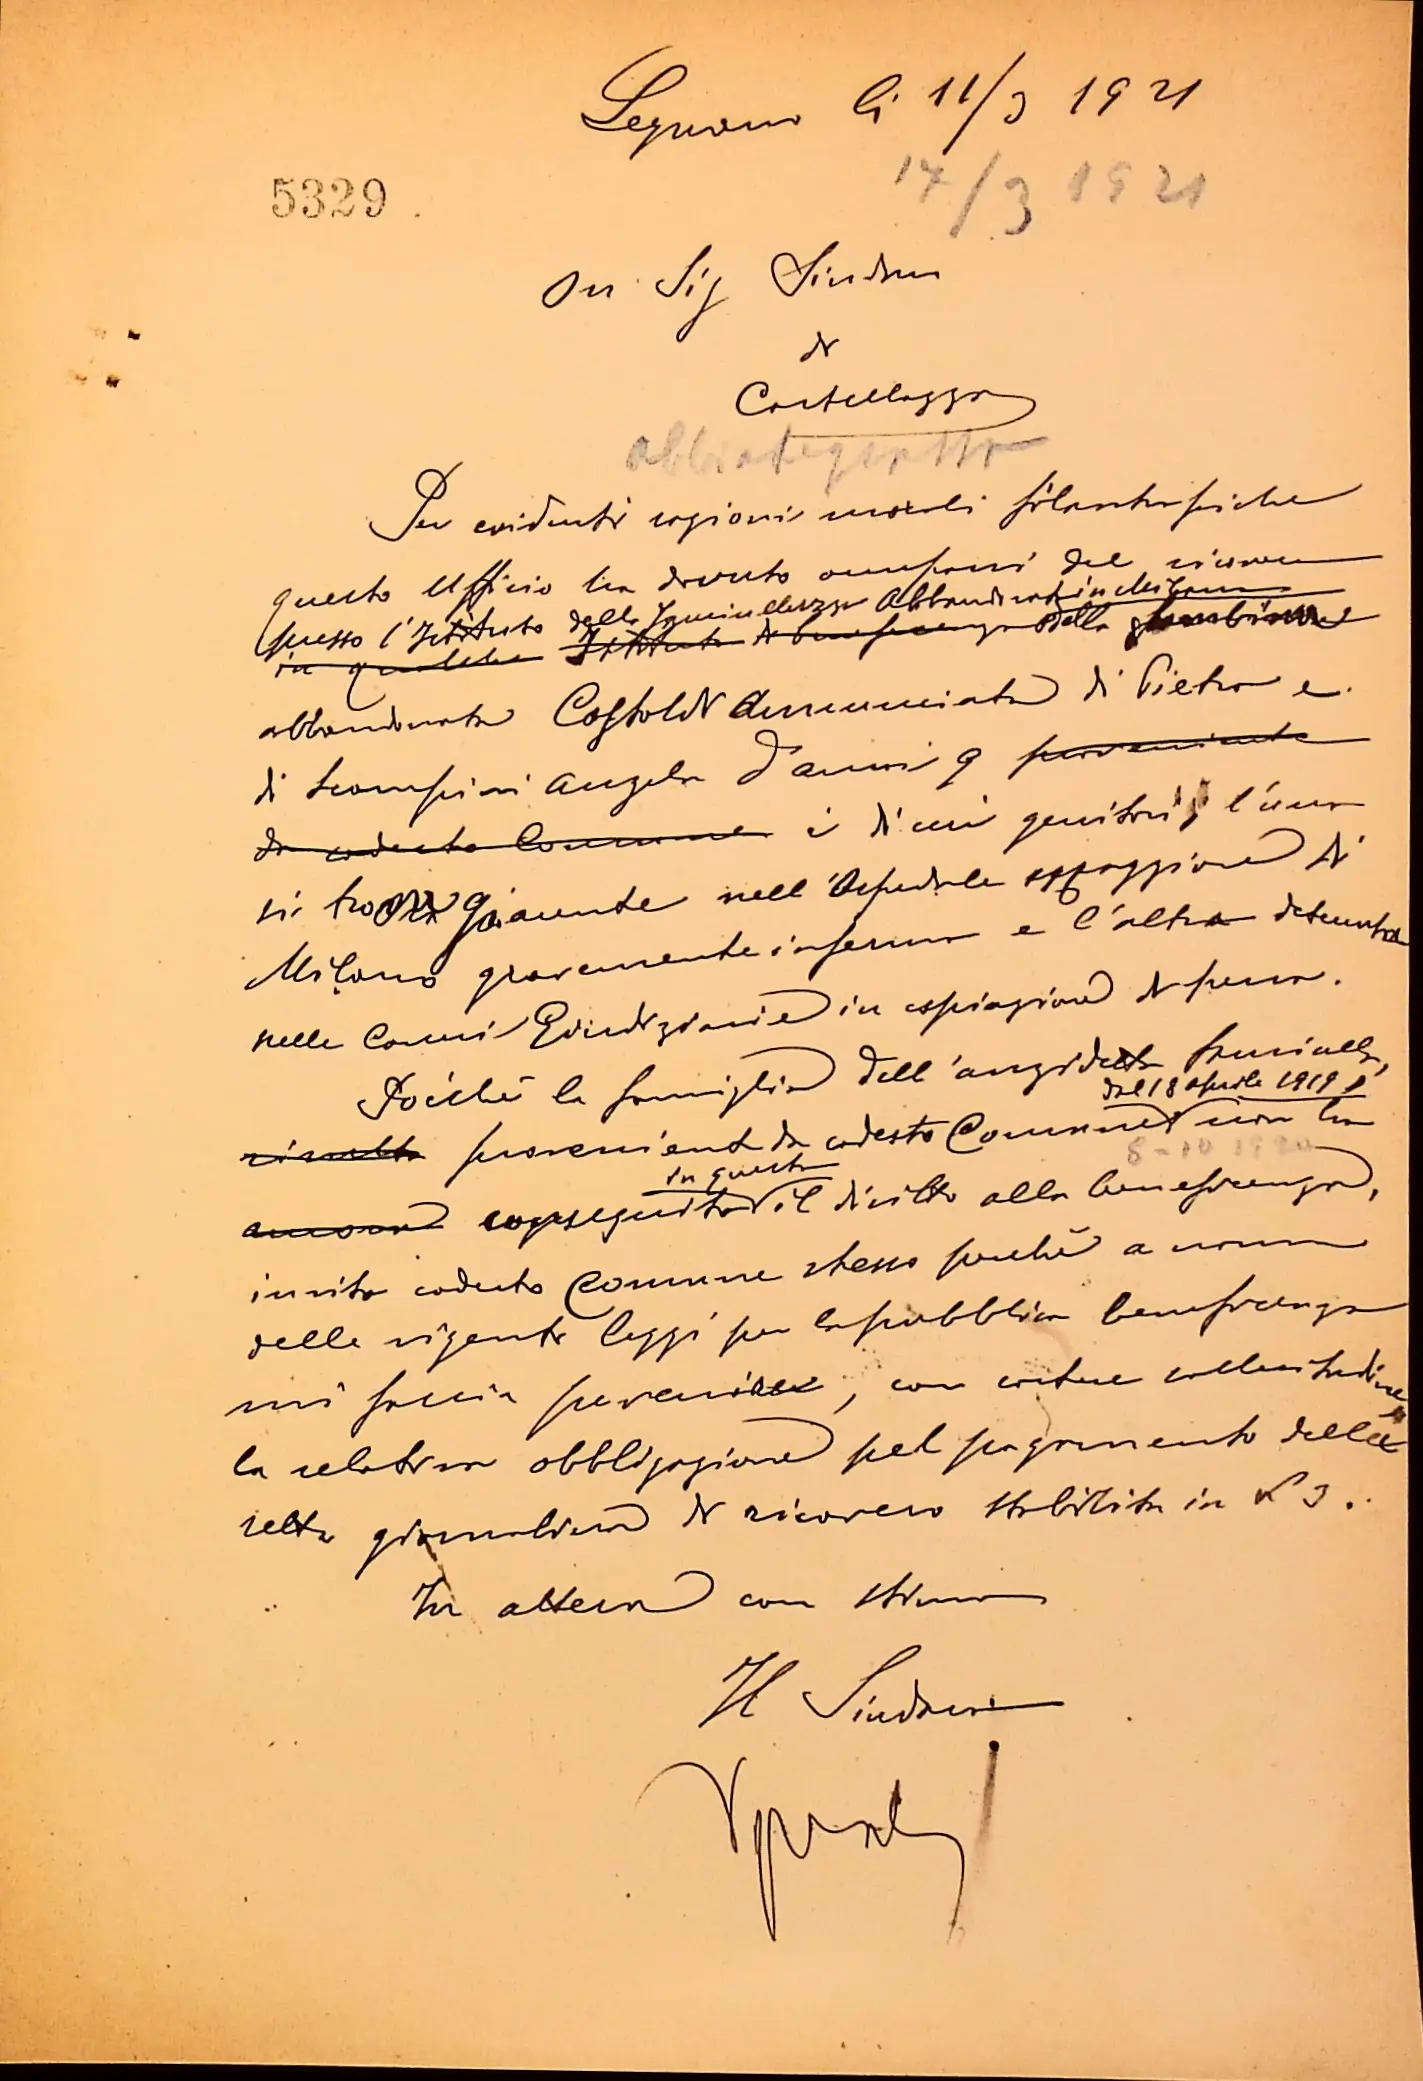 Legnano li 11/3 1921
14/3 1921
5329
On Sig Sindaco
di
Castellazzo
Abbiategrasso
Per evidenti ragioni morali filantropiche
questo Ufficio ha dovuto occuparsi del ricovero
presso l'Istituto della Fanciullezza Abbandonata in Milano
in qualche Istituto di beneficenza della bambina
abbandonata Castoldi Annunciata di Pietro e
di Scampini Angela d'anni 9 proveniente
da codesto Comune i di cui genitori, l'uno
si trova giacente nell'Ospedale Maggiore di
Milano gravemente infermo e l'altra detenuta
nelle Carceri Giudiziarie in espiazione di pena.
Poichè la famiglia dell'anzidetta fanciulla,
dal 18 aprile 1919
risulta provenient da codesto Comune non ha
8-10 1920
in questo
ancora conseguito il diritto alla beneficenza,
invito codesto Comune stesso perchè a norma
delle vigenti leggi per la pubblica beneficenza
mi faccia pervenire, con cortese sollecitudine
la relativa obbligazione pel pagamento della
retta giornaliera di ricovero stabilita in L 3.
In attesa con stima
Il Sindaco